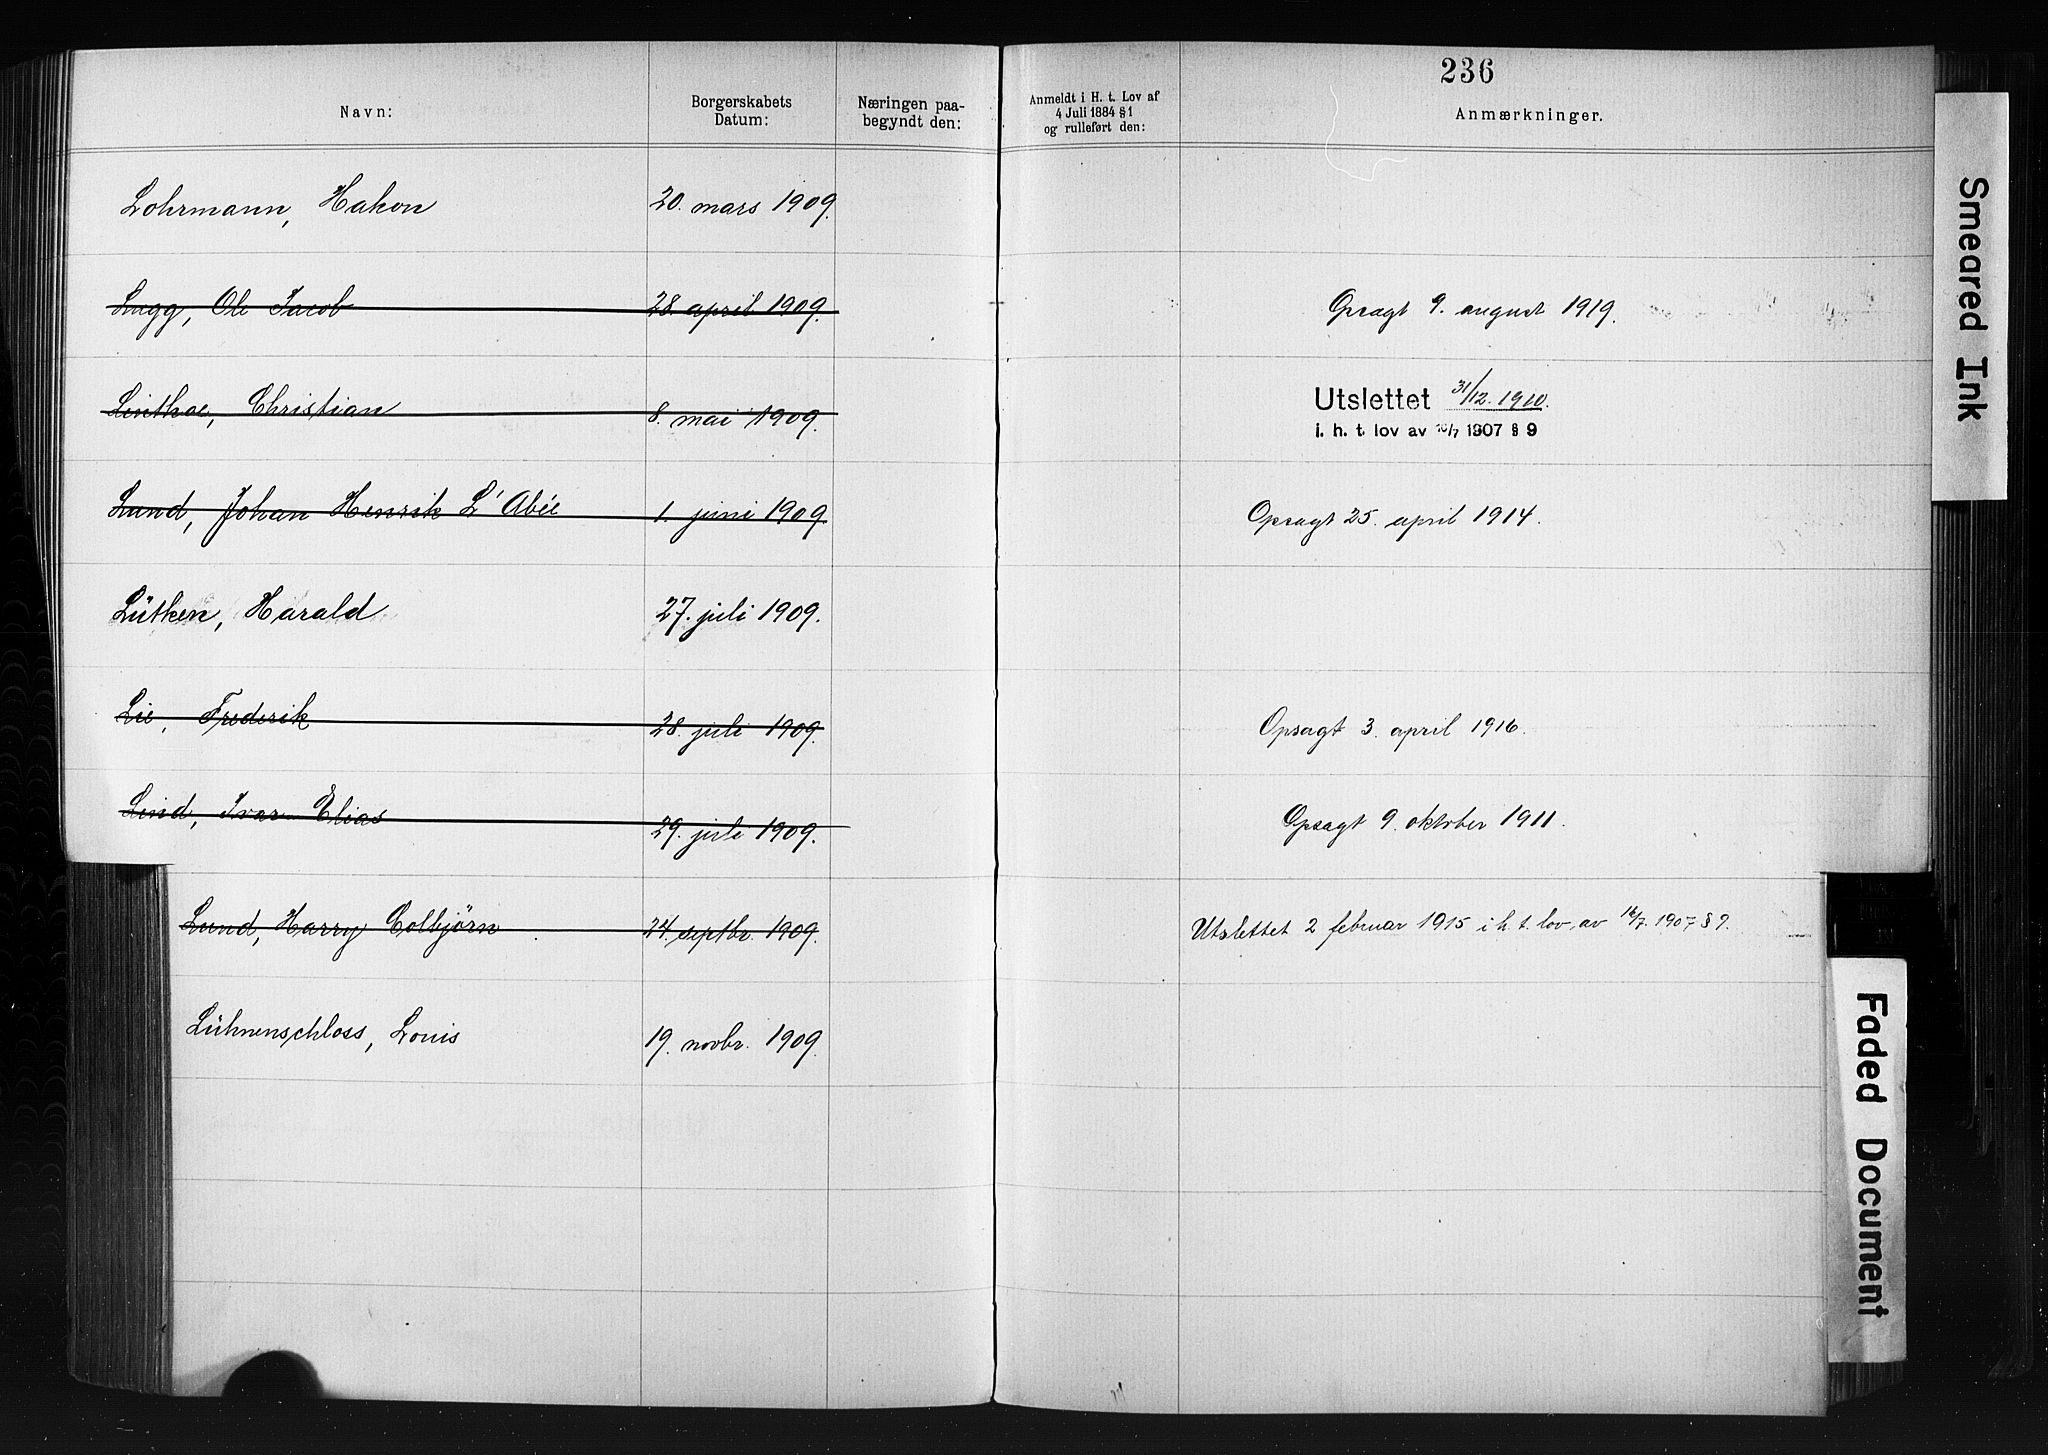 236
Navn:
Borgerskabets Datum:
Næringen paabegyndt den:
Anmeldt i H. t. Lov af 4 Juli 1884 § 1 og rulleført den:
Anmærkninger.
Lohrmann, Hakon 20. mars 1909.
Lugg, Ole Jacob 28. april 1909. Opsagt 9. august 1919.
Linthoe, Christian 8. mai 1909. Utslettet 31/12. 1910.
i. h. t. lov av 16/7 1907 § 9
Lund, Johan Henrik L'Abée 1. juni 1909 Opsagt 25. april 1914.
Lütken, Harald 27. juli 1909.
Lie, Frederik 28. juli 1909. Opsagt 3. april 1916.
Lind, Ivar Elias 29. juli 1909. Opsagt 9. oktober 1911.
Lund, Harry Colbjörn 24. septbr. 1909. Utslettet 2 februar 1915 i h. t. lov av 16/7. 1907 § 9.
Lühnenschloss, Louis 19. novbr. 1909.
Smeared Ink
Faded Document